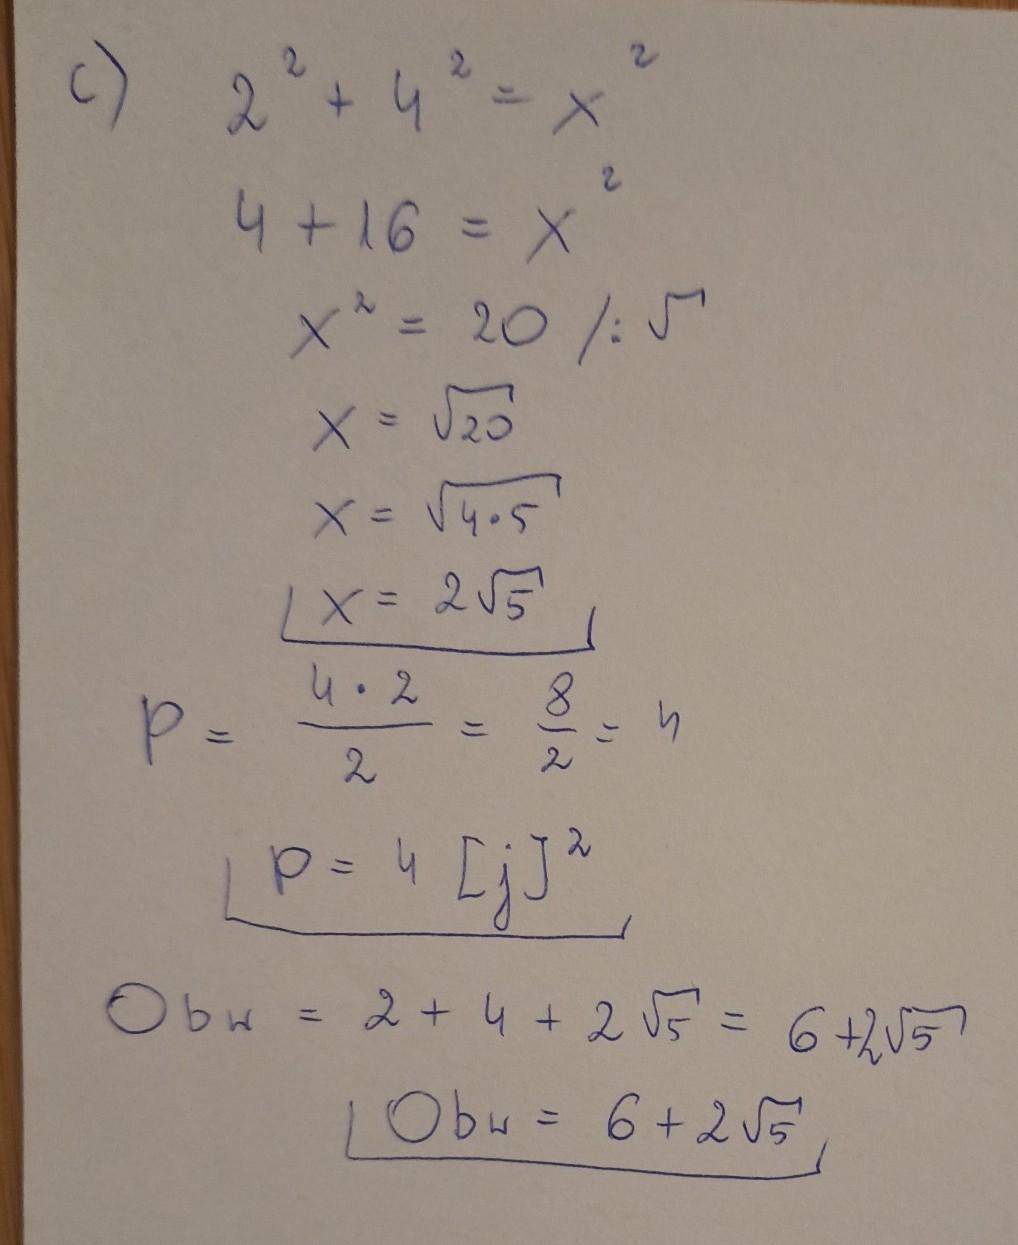 c) 2² + 4² = x²
4 + 16 = x²
x² = 20 /: √
x = √20
x = √4·5
x = 2√5
P = 4·2/2 = 8/2 = 4
P = 4 [j]²
Obw = 2 + 4 + 2√5 = 6+2√5
Obw = 6 + 2√5